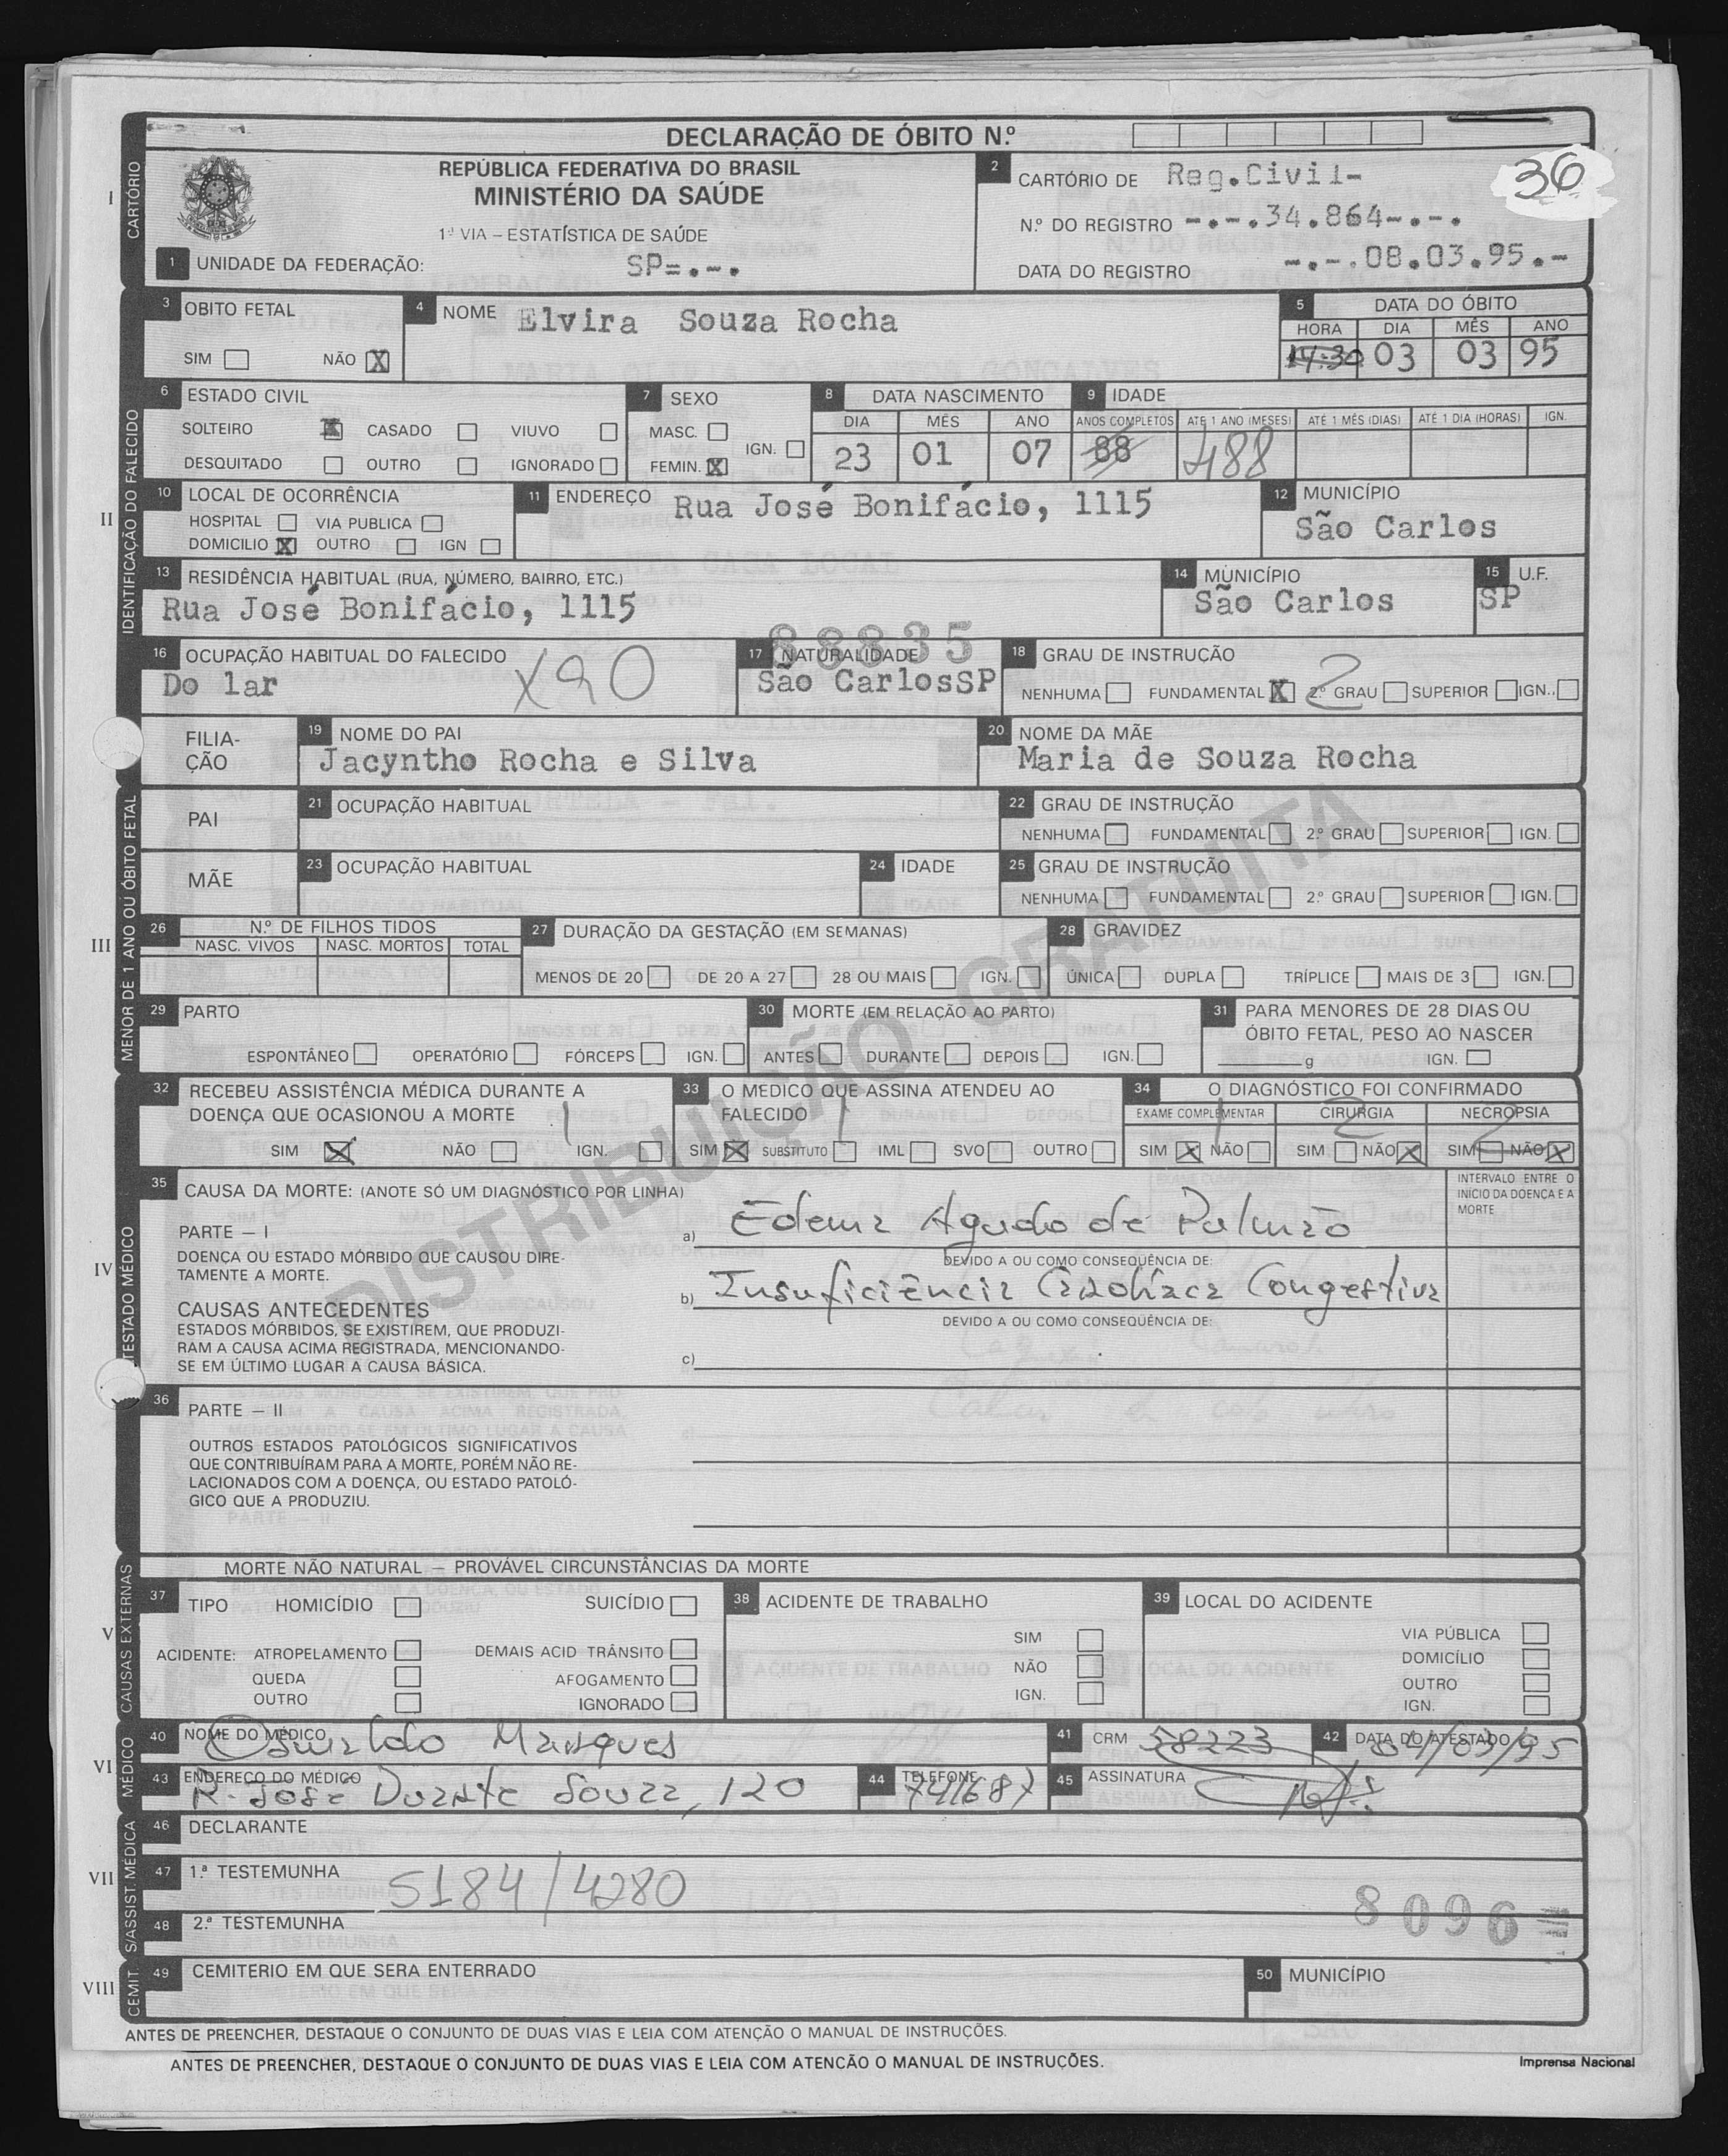 DECLARAÇÃO DE ÓBITO N.º
I
CARTÓRIO
REPÚBLICA FEDERATIVA DO BRASIL
MINISTÉRIO DA SAÚDE
1ª VIA – ESTATÍSTICA DE SAÚDE
1 UNIDADE DA FEDERAÇÃO: SP=.-.
2 CARTÓRIO DE Reg.Civil-
36
N.º DO REGISTRO -.-.34.864-.-.
DATA DO REGISTRO -.-.08.03.95.-
II
IDENTIFICAÇÃO DO FALECIDO
3 OBITO FETAL
SIM NÃO X
4 NOME Elvira Souza Rocha
5 DATA DO ÓBITO
HORA DIA MÊS ANO
14:30 03 03 95
6 ESTADO CIVIL
SOLTEIRO X CASADO VIUVO
DESQUITADO OUTRO IGNORADO
7 SEXO
MASC. IGN.
FEMIN. X
8 DATA NASCIMENTO
DIA MÊS ANO
23 01 07
9 IDADE
ANOS COMPLETOS ATÉ 1 ANO (MESES) ATÉ 1 MÊS (DIAS) ATÉ 1 DIA (HORAS) IGN.
88 488
10 LOCAL DE OCORRÊNCIA
HOSPITAL VIA PUBLICA
DOMICILIO X OUTRO IGN
11 ENDEREÇO Rua José Bonifácio, 1115
12 MUNICÍPIO
São Carlos
13 RESIDÊNCIA HABITUAL (RUA, NÚMERO, BAIRRO, ETC.)
Rua José Bonifácio, 1115
14 MUNICÍPIO
São Carlos
15 U.F.
SP
88835
16 OCUPAÇÃO HABITUAL DO FALECIDO
Do lar X90
17 NATURALIDADE
São CarlosSP
18 GRAU DE INSTRUÇÃO
NENHUMA FUNDAMENTAL X 2.º GRAU SUPERIOR IGN.
2
FILIA-
ÇÃO
19 NOME DO PAI
Jacyntho Rocha e Silva
20 NOME DA MÃE
Maria de Souza Rocha
III
MENOR DE 1 ANO OU ÓBITO FETAL
PAI
21 OCUPAÇÃO HABITUAL
22 GRAU DE INSTRUÇÃO
NENHUMA FUNDAMENTAL 2.º GRAU SUPERIOR IGN.
MÃE
23 OCUPAÇÃO HABITUAL
24 IDADE
25 GRAU DE INSTRUÇÃO
NENHUMA FUNDAMENTAL 2.º GRAU SUPERIOR IGN.
26 N.º DE FILHOS TIDOS
NASC. VIVOS NASC. MORTOS TOTAL
27 DURAÇÃO DA GESTAÇÃO (EM SEMANAS)
MENOS DE 20 DE 20 A 27 28 OU MAIS IGN.
28 GRAVIDEZ
ÚNICA DUPLA TRÍPLICE MAIS DE 3 IGN.
29 PARTO
ESPONTÂNEO OPERATÓRIO FÓRCEPS IGN.
30 MORTE (EM RELAÇÃO AO PARTO)
ANTES DURANTE DEPOIS IGN.
31 PARA MENORES DE 28 DIAS OU
ÓBITO FETAL, PESO AO NASCER
g IGN.
DISTRIBUIÇÃO GRATUITA
IV
ATESTADO MÉDICO
32 RECEBEU ASSISTÊNCIA MÉDICA DURANTE A
DOENÇA QUE OCASIONOU A MORTE 1
SIM X NÃO IGN.
33 O MEDICO QUE ASSINA ATENDEU AO
FALECIDO 1
SIM X SUBSTITUTO IML SVO OUTRO
34 O DIAGNÓSTICO FOI CONFIRMADO
EXAME COMPLEMENTAR CIRURGIA NECROPSIA
1 2 2
SIM X NÃO SIM NÃO X SIM NÃO X
35 CAUSA DA MORTE: (ANOTE SÓ UM DIAGNÓSTICO POR LINHA)
INTERVALO ENTRE O
INÍCIO DA DOENÇA E A
MORTE
PARTE – I
DOENÇA OU ESTADO MÓRBIDO QUE CAUSOU DIRE-
TAMENTE A MORTE.
a) Edema Agudo de Pulmão
DEVIDO A OU COMO CONSEQUÊNCIA DE:
b) Insuficiência Cardíaca Congestiva
DEVIDO A OU COMO CONSEQUÊNCIA DE:
CAUSAS ANTECEDENTES
ESTADOS MÓRBIDOS, SE EXISTIREM, QUE PRODUZI-
RAM A CAUSA ACIMA REGISTRADA, MENCIONANDO-
SE EM ÚLTIMO LUGAR A CAUSA BÁSICA.
c)
36 PARTE – II
OUTROS ESTADOS PATOLÓGICOS SIGNIFICATIVOS
QUE CONTRIBUÍRAM PARA A MORTE, PORÉM NÃO RE-
LACIONADOS COM A DOENÇA, OU ESTADO PATOLÓ-
GICO QUE A PRODUZIU.
V
CAUSAS EXTERNAS
MORTE NÃO NATURAL – PROVÁVEL CIRCUNSTÂNCIAS DA MORTE
37 TIPO HOMICÍDIO SUICÍDIO
ACIDENTE: ATROPELAMENTO DEMAIS ACID TRÂNSITO
QUEDA AFOGAMENTO
OUTRO IGNORADO
38 ACIDENTE DE TRABALHO
SIM
NÃO
IGN.
39 LOCAL DO ACIDENTE
VIA PÚBLICA
DOMICÍLIO
OUTRO
IGN.
VI
MÉDICO
40 NOME DO MÉDICO
Osmaldo Marques
41 CRM 58223
42 DATA DO ATESTADO
04/03/95
43 ENDEREÇO DO MÉDICO
R. José Duarte Souza, 120
44 TELEFONE
741687
45 ASSINATURA
VII
S/ASSIST. MÉDICA
46 DECLARANTE
47 1.ª TESTEMUNHA
5184/4280
8096
48 2.ª TESTEMUNHA
VIII
CEMIT.
49 CEMITERIO EM QUE SERA ENTERRADO
50 MUNICÍPIO
ANTES DE PREENCHER, DESTAQUE O CONJUNTO DE DUAS VIAS E LEIA COM ATENÇÃO O MANUAL DE INSTRUÇÕES.
ANTES DE PREENCHER, DESTAQUE O CONJUNTO DE DUAS VIAS E LEIA COM ATENCÃO O MANUAL DE INSTRUÇÕES.
Imprensa Nacional